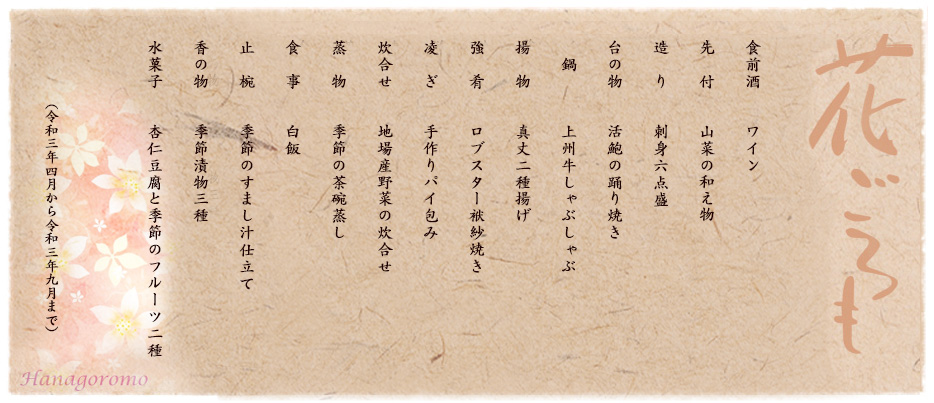 花ごろも
食前酒 ワイン
先付 山菜の和え物
造り 刺身六点盛
台の物 活鮑の踊り焼き
鍋 上州牛しゃぶしゃぶ
揚物 真丈二種揚げ
強肴 ロブスター袱紗焼き
凌ぎ 手作りパイ包み
炊合せ 地場産野菜の炊合せ
蒸物 季節の茶碗蒸し
食事 白飯
止椀 季節のすまし汁仕立て
香の物 季節漬物三種
水菓子 杏仁豆腐と季節のフルーツ二種
(令和三年四月から令和三年九月まで)
Hanagoromo